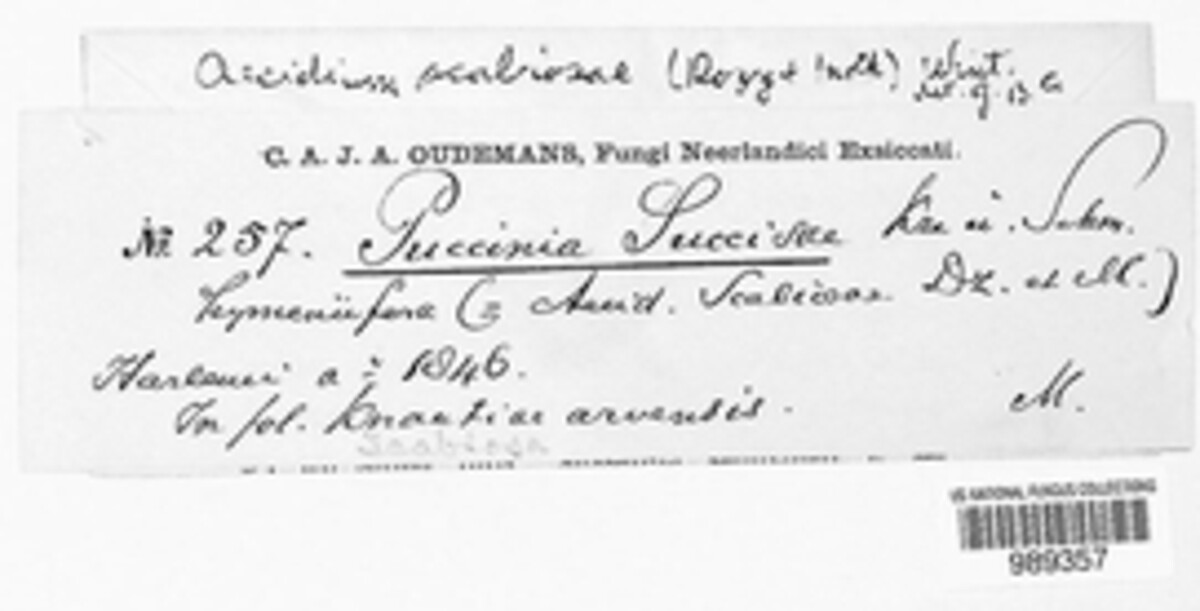 Aecidium scabiosae (Dozy + Molk)
C. A. J. A. OUDEMANS, Fungi Neerlandici Exsiccati.
№ 257. Puccinia Succisae Kze u. Schm.
hymeniifera (= Aecid. Scabiosae Dz. et M.)
Harlemi a° 1846.
In fol. Knautiae arvensis. M.
Scabiosa
US NATIONAL FUNGUS COLLECTIONS
989357